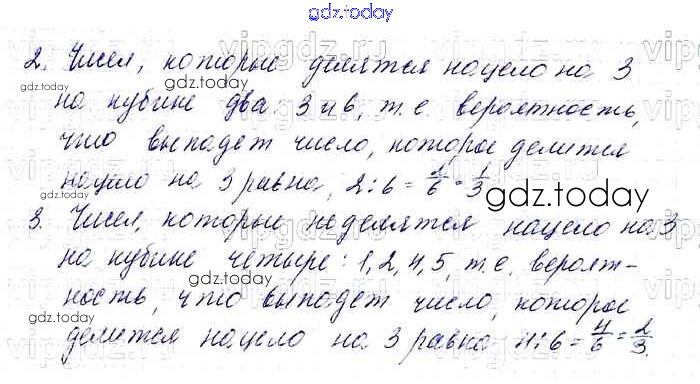 gdz.today
2. Чисел, которые делятся нацело на 3
на кубике два: 3 и 6, т.е. вероятность,
что выпадет число, которое делится
нацело на 3 равна, 2:6 = 2/6 = 1/3
gdz.today
3. Чисел, которые не делятся нацело на 3
на кубике четыре: 1, 2, 4, 5, т.е. вероят-
ность, что выпадет число, которое
делится нацело на 3 равна 4:6 = 4/6 = 2/3.